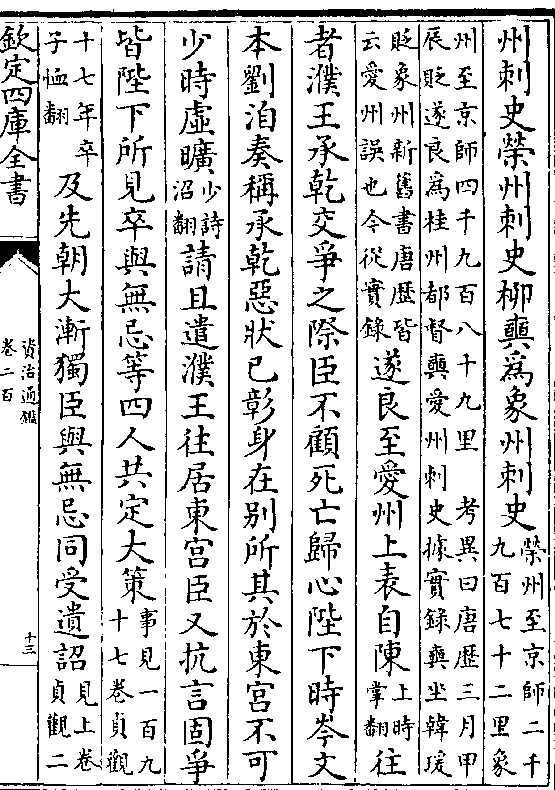 州刺史榮州刺史柳奭為象州刺史榮州至京師二千九百七十二里象
州至京師四千九百八十九里　考異曰唐歴三月甲辰貶遂良為桂州都督奭愛州刺史據實錄奭坐韓瑗
貶象州新舊書唐歴皆云愛州誤也今從實錄遂良至愛州上表自陳上時掌翻往
者濮王承乾交爭之際臣不顧死亡歸心陛下時岑文
本劉洎奏稱承乾惡狀已彰身在别所其於東宮不可
少時虛曠少詩沼翻請且遣濮王往居東宮臣又抗言固爭
皆陛下所見卒與無忌等四人共定大策事見一百九十七卷貞觀
十七年卒子恤翻及先朝大漸獨臣與無忌同受遺詔見上卷貞觀二
欽定四庫全書
資治通鑑
卷二百
十三